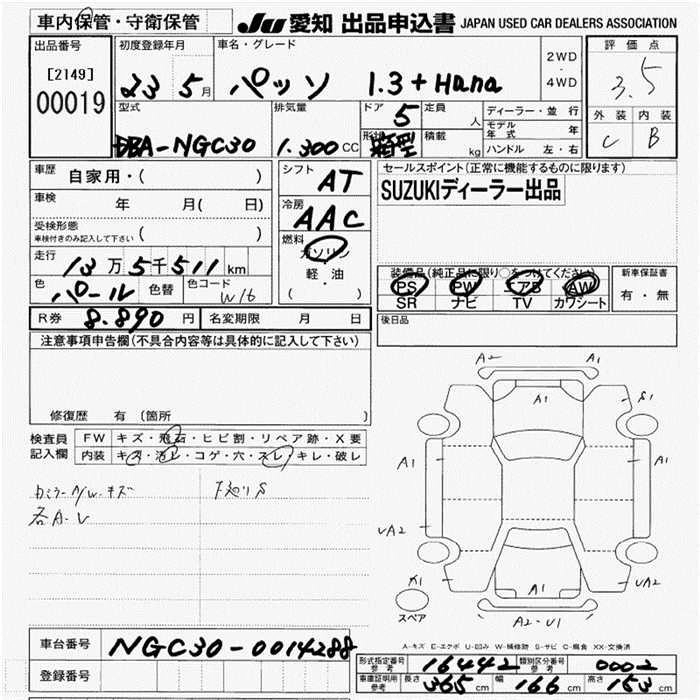 車内保管・守衛保管 JU 愛知 出品申込書 JAPAN USED CAR DEALERS ASSOCIATION
出品番号 初度登録年月 車名・グレード 2WD 評価点
[2149] 23 5月 パッソ 1.3 + Hana 4WD 3.5
00019 型式 排気量 ドア 定員 ディーラー・並行 外装 内装
5 人 モデル年式 年
DBA-NGC30 1.300CC 形状 箱型 積載 kg ハンドル 左・右 C B
車歴 自家用・( ) シフト AT セールスポイント(正常に機能するものに限ります)
SUZUKIディーラー出品
車検 年 月( 日) 冷房 AAC
受検形態
車検付きのみ記入して下さい ( ) 燃料 ガソリン
走行 13万5千511km 軽・油 装備品(純正品に限り○をつけてください) 新車保証書
色 パール 色替 色コード W16 ( ) PS PW エアB AW 有・無
SR ナビ TV カワシート
R券 8.890円 名変期限 月 日 後日品
注意事項申告欄(不具合内容等は具体的に記入して下さい)
A2 A1
A1 S1
修復歴 有 (箇所 )
検査員 FW キズ・飛石・ヒビ割・リペア跡・X要
記入欄 内装 キズ・汚レ・コゲ・穴・スレ・キレ・破レ
A1 A1
カミラーA/W-キズ 下廻りS
各A-U
UA2
X1 A1 UA2
スペア A2-U1
A-キズ E-エクボ U-凹み W-補修跡 S-サビ C-腐食 XX-交換済
車台番号 NGC30-0014288
型式指定番号 参考 16442 類別区分番号 参考 0002
登録番号 車庫証明用 参考 長さ 365cm 幅 166cm 高さ 153cm